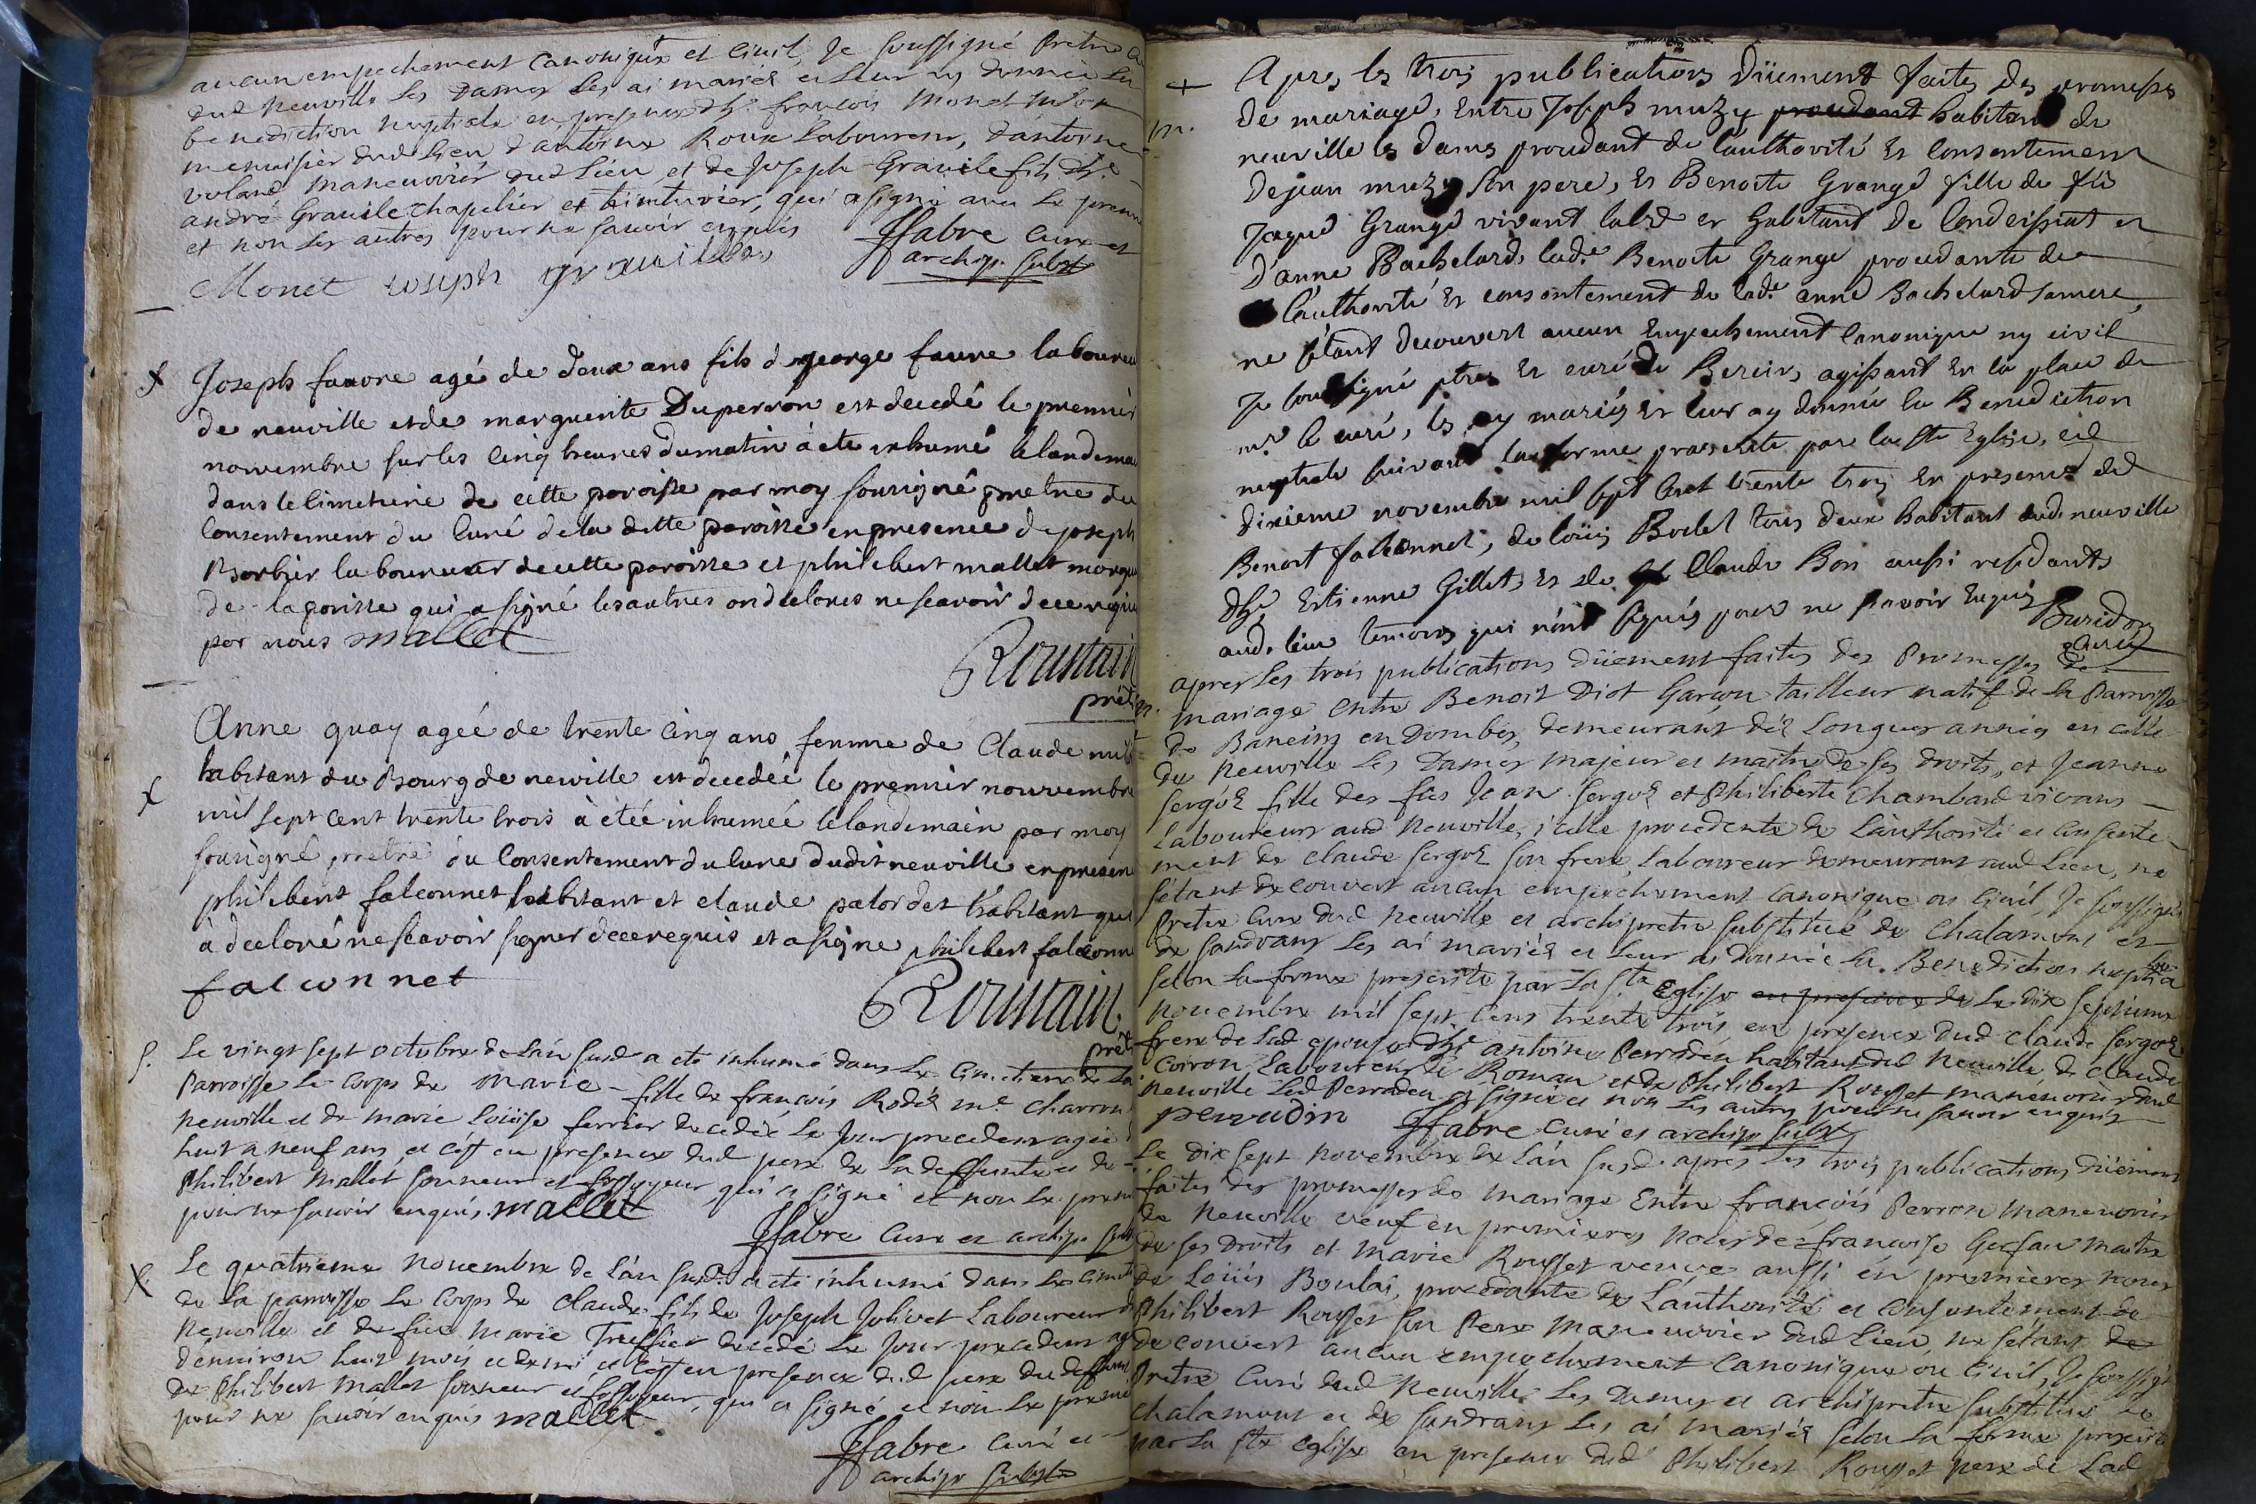 aucun empechement canonique et civil, Je soussigné Pretre
dud neuville les Dames les ai mariés et leur ay donnée la
benediction nuptiale en presence de Sr françois Monet
menuisier dud Lieu, d'antoine Roux Laboureur, d'antoine
maneuvrier dud Lieu et de Joseph Gravile fils de
andré Gravile chapelier et teinturier, qui a signé avec le premier
et non les autres pour ne savoir enquis
Monet joseph gravilles ffabre curé et
archip. subst
Joseph fauvre agé de deux ans fils d george faure laboureur
de neuville et de marguerite Duperron est decedé le premier
novembre sur les cinq heures du matin à ete inhumé le landemain
dans le cimetiere de cette paroisse par moy sousigné pretre du
consentement du curé de la ditte paroisse en presence de joseph
Borbier laboureur de cette paroisse et philebert mallet
de la parisse qui a signé les autres ont declores ne scavoir de ce requis
par nous mallet
Roustain
prêt
Anne quay agée de trente cinq ans femme de Claude
habitant du Bourg de neuville est decedée le premier nouvembre
mil sept cent trente trois à étée inhumée le landemain par moy
sousigné pretre du consentement du curé dudit neuville en presence
philebert falconnet habitant et claude palordet habitant qui
à decloré ne scavoir signer de ce requis et a signe philebert falconn
falconnet
Roustain
prêt
Le vingt sept octobre de l'an susd a eté inhumé dans le cimetiere de la
Parroisse le corps de Marie fille de françois Rodet me charron
neuville et de marie Loüise ferrier decedée le jour precedent agée
huit a neuf ans, et c'est en presence dud pere de la deffunte et de
Philibert Mallet sonneur et fossoyeur qui a signé et non le premier
pour ne savoir enquis. mallet
ffabre curé et archip. subst
Le quatrieme novembre de l'an susd. a eté inhumé dans le cimeti
de la parroisse le corps de Claude fils de Joseph Jolivet Laboureur
Neuville et de füe Marie Truffier decedé le jour precedent agé
d'environ huit mois et demi, et c'est en presence dud pere du deffunt
de Philibert Mallet sonneur et fossoyeur, qui a signé et non le premier
pour ne savoir enquis mallet
ffabre curé et
archip subst
Apres les trois publications düement faites des promesses
m. de mariage, Entre Joseph muzy procedant habitant de
neuville les dames procedant de l'authorité et consentement
de jean muzy son pere, et Benoite Grange fille de feû
Jaque Grange vivant labr et habitant de Condeissiat et
D'anne Bachelard, lade Benoite Grange procedante de
l'authorité et consentement de lade anne Bachelard sa mere,
ne s'étant decouvert aucun Empechement canonique ny civil
Je soussigné ptre et curé de Bereins agissant en la place de
mr le curé, les ay mariés et leur ay donnée la Benediction
nuptiale suivant la forme prescrite par la ste Eglise, ce
dixieme novembre mil sept cent trente trois en presence de
Benoit falconnet, de loüis Bodel tous deux habitant dud. neuville
d'hte Estienne Gillet, et de Claude Bon aussi residants
aud. lieu temoins qui n'ont signés pour ne scavoir Enquis Buridon
curé
apres les trois publications düement faites des Promesses de
mariage entre Benoit Diot Garçon tailleur natif de la Parroisse
de Baneins en Dombes, demeurant dés Longues années en celle
de Neuville les Dames majeur et maitre de ses droits, et Jeanne
sergoz fille des füs Jean sergoz et Philiberte Chambard vivans
laboureurs aud Neuville, icelle procedente de l'authorité et consente-
ment de claude sergoz son frere, Laboureur demeurant aud Lieu, ne
s'étant decouvert aucun empechement canonique ou civil, Je soussigné
Pretre Curé dud Neuville et archipretre substitué de Chalamont et
de sandrans les ai mariés et leur ai donnée la Benediction nuptiale
selon la forme prescrite par la ste Eglise en presence de Le dix septieme
Novembre mil sept cens trente trois en presence dud Claude sergoz
frere de Lad epouse d'hte antoine Perradin habitant dud Neuville, de Claude
Coiron, Laboureur de Roman et de Philibert Rousset maneuvrier dud
neuville Led Perradin a signé et non les autres pour ne savoir enquis
perradin ffabre Curé et archip subst
Le dix sept Novembre de l'an susd. apres les trois publications düement
faites des promesses de mariage Entre françois Perron maneuvrier
de Neuville veuf en premieres noces de françoise maitre
de ses droits et Marie Rousset veuve aussi en premieres noces
de Loüis Boulai, procedante de l'authorité et consentement de
Philibert Rousset son Pere maneuvrier dud Lieu, ne s'etant de
decouvert aucun empechement canonique ou civil, Je soussigné
Pretre Curé dud Neuville les Dames et archipretre substitué de
Chalamont et de sandrans les ai mariés selon la forme prescrite
par la ste eglise en presence dud Philibert Rousset pere de Lad